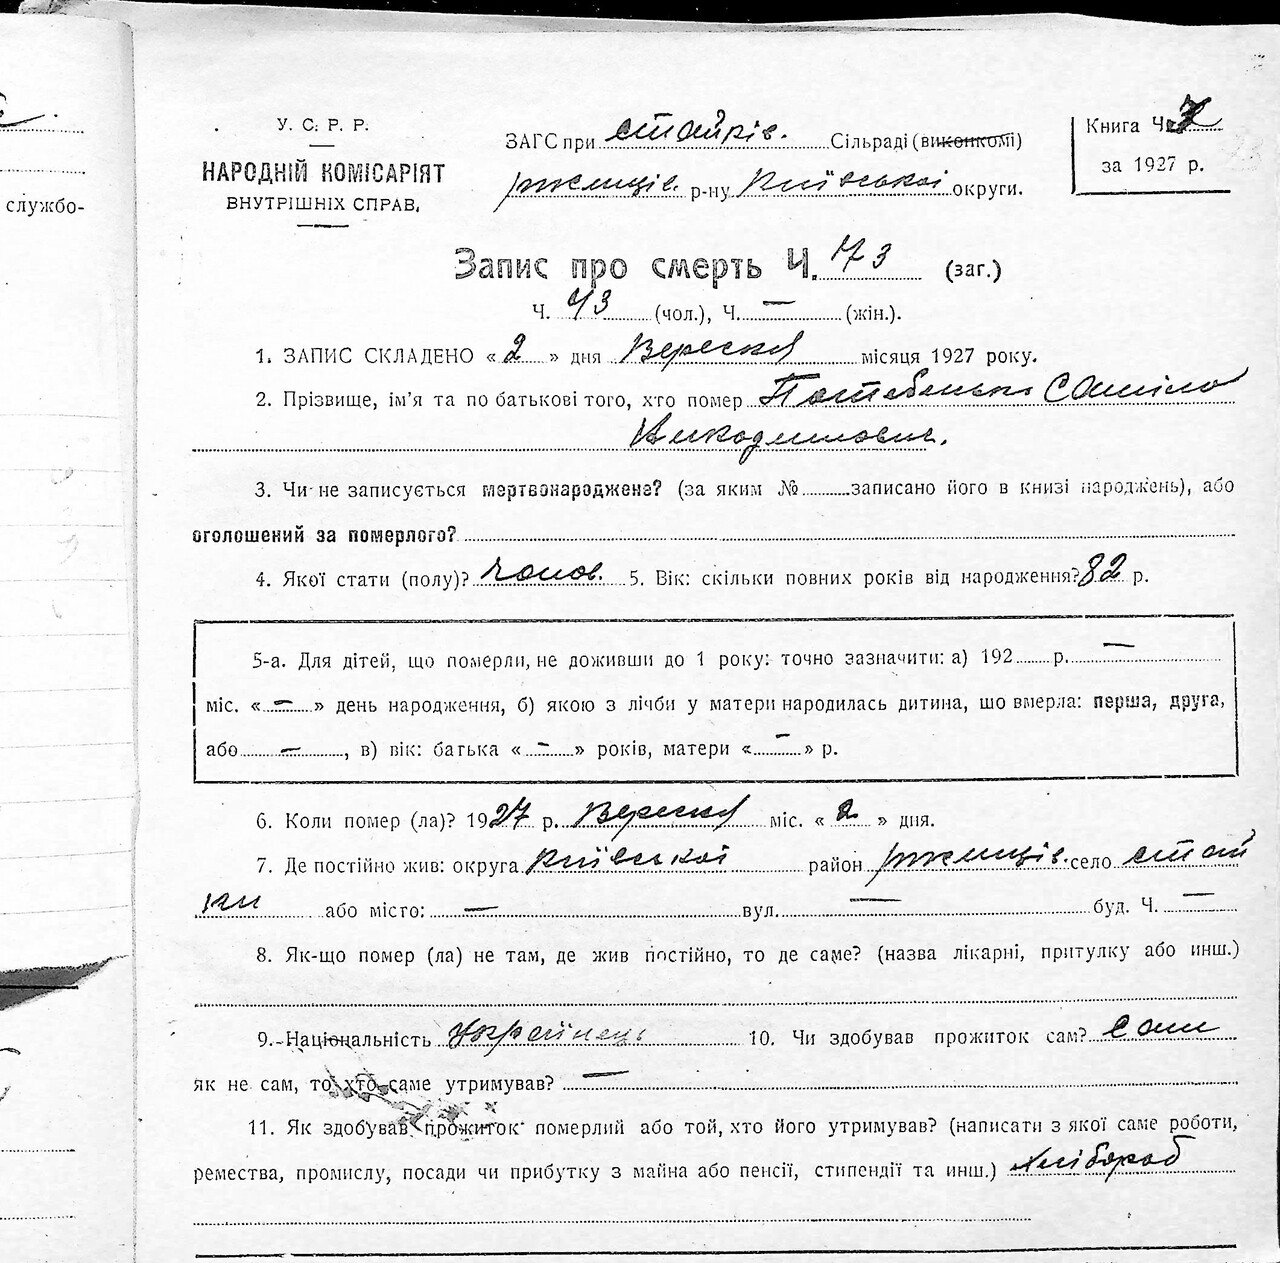 службо-
У. С. Р. Р.
НАРОДНІЙ КОМІСАРІЯТ
ВНУТРІШНІХ СПРАВ,
ЗАГС при стайків. Сільраді (виконкомі)
ржищів. р-ну Київської округи.
Книга Ч. 7
за 1927 р.
Запис про смерть Ч. 73 (заг.)
Ч. 43 (чол.), Ч. — (жін.).
1. ЗАПИС СКЛАДЕНО « 2 » дня Вересня місяця 1927 року.
2. Прізвище, ім'я та по батькові того, хто помер Самійло
Никодимович.
3. Чи не записується мертвонароджене? (за яким № записано його в книзі народжень), або
оголошений за померлого?
4. Якої стати (полу)? чолов. 5. Вік: скільки повних років від народження? 82 р.
5-а. Для дітей, що померли, не доживши до 1 року: точно зазначити: а) 192 р. —
міс. « — » день народження, б) якою з лічби у матери народилась дитина, що вмерла: перша, друга,
або —, в) вік: батька « — » років, матери « — » р.
6. Коли помер (ла)? 1927 р. Вересня міс. « 2 » дня.
7. Де постійно жив: округа Київської район ржищів. село стай
ки або місто: — вул. — буд. Ч. —
8. Як-що помер (ла) не там, де жив постійно, то де саме? (назва лікарні, притулку або инш.)
9. Національність Українець 10. Чи здобував прожиток сам? Сам
як не сам, то хто саме утримував? —
11. Як здобував прожиток померлий або той, хто його утримував? (написати з якої саме роботи,
ремества, промислу, посади чи прибутку з майна або пенсії, стипендії та инш.) хлібороб